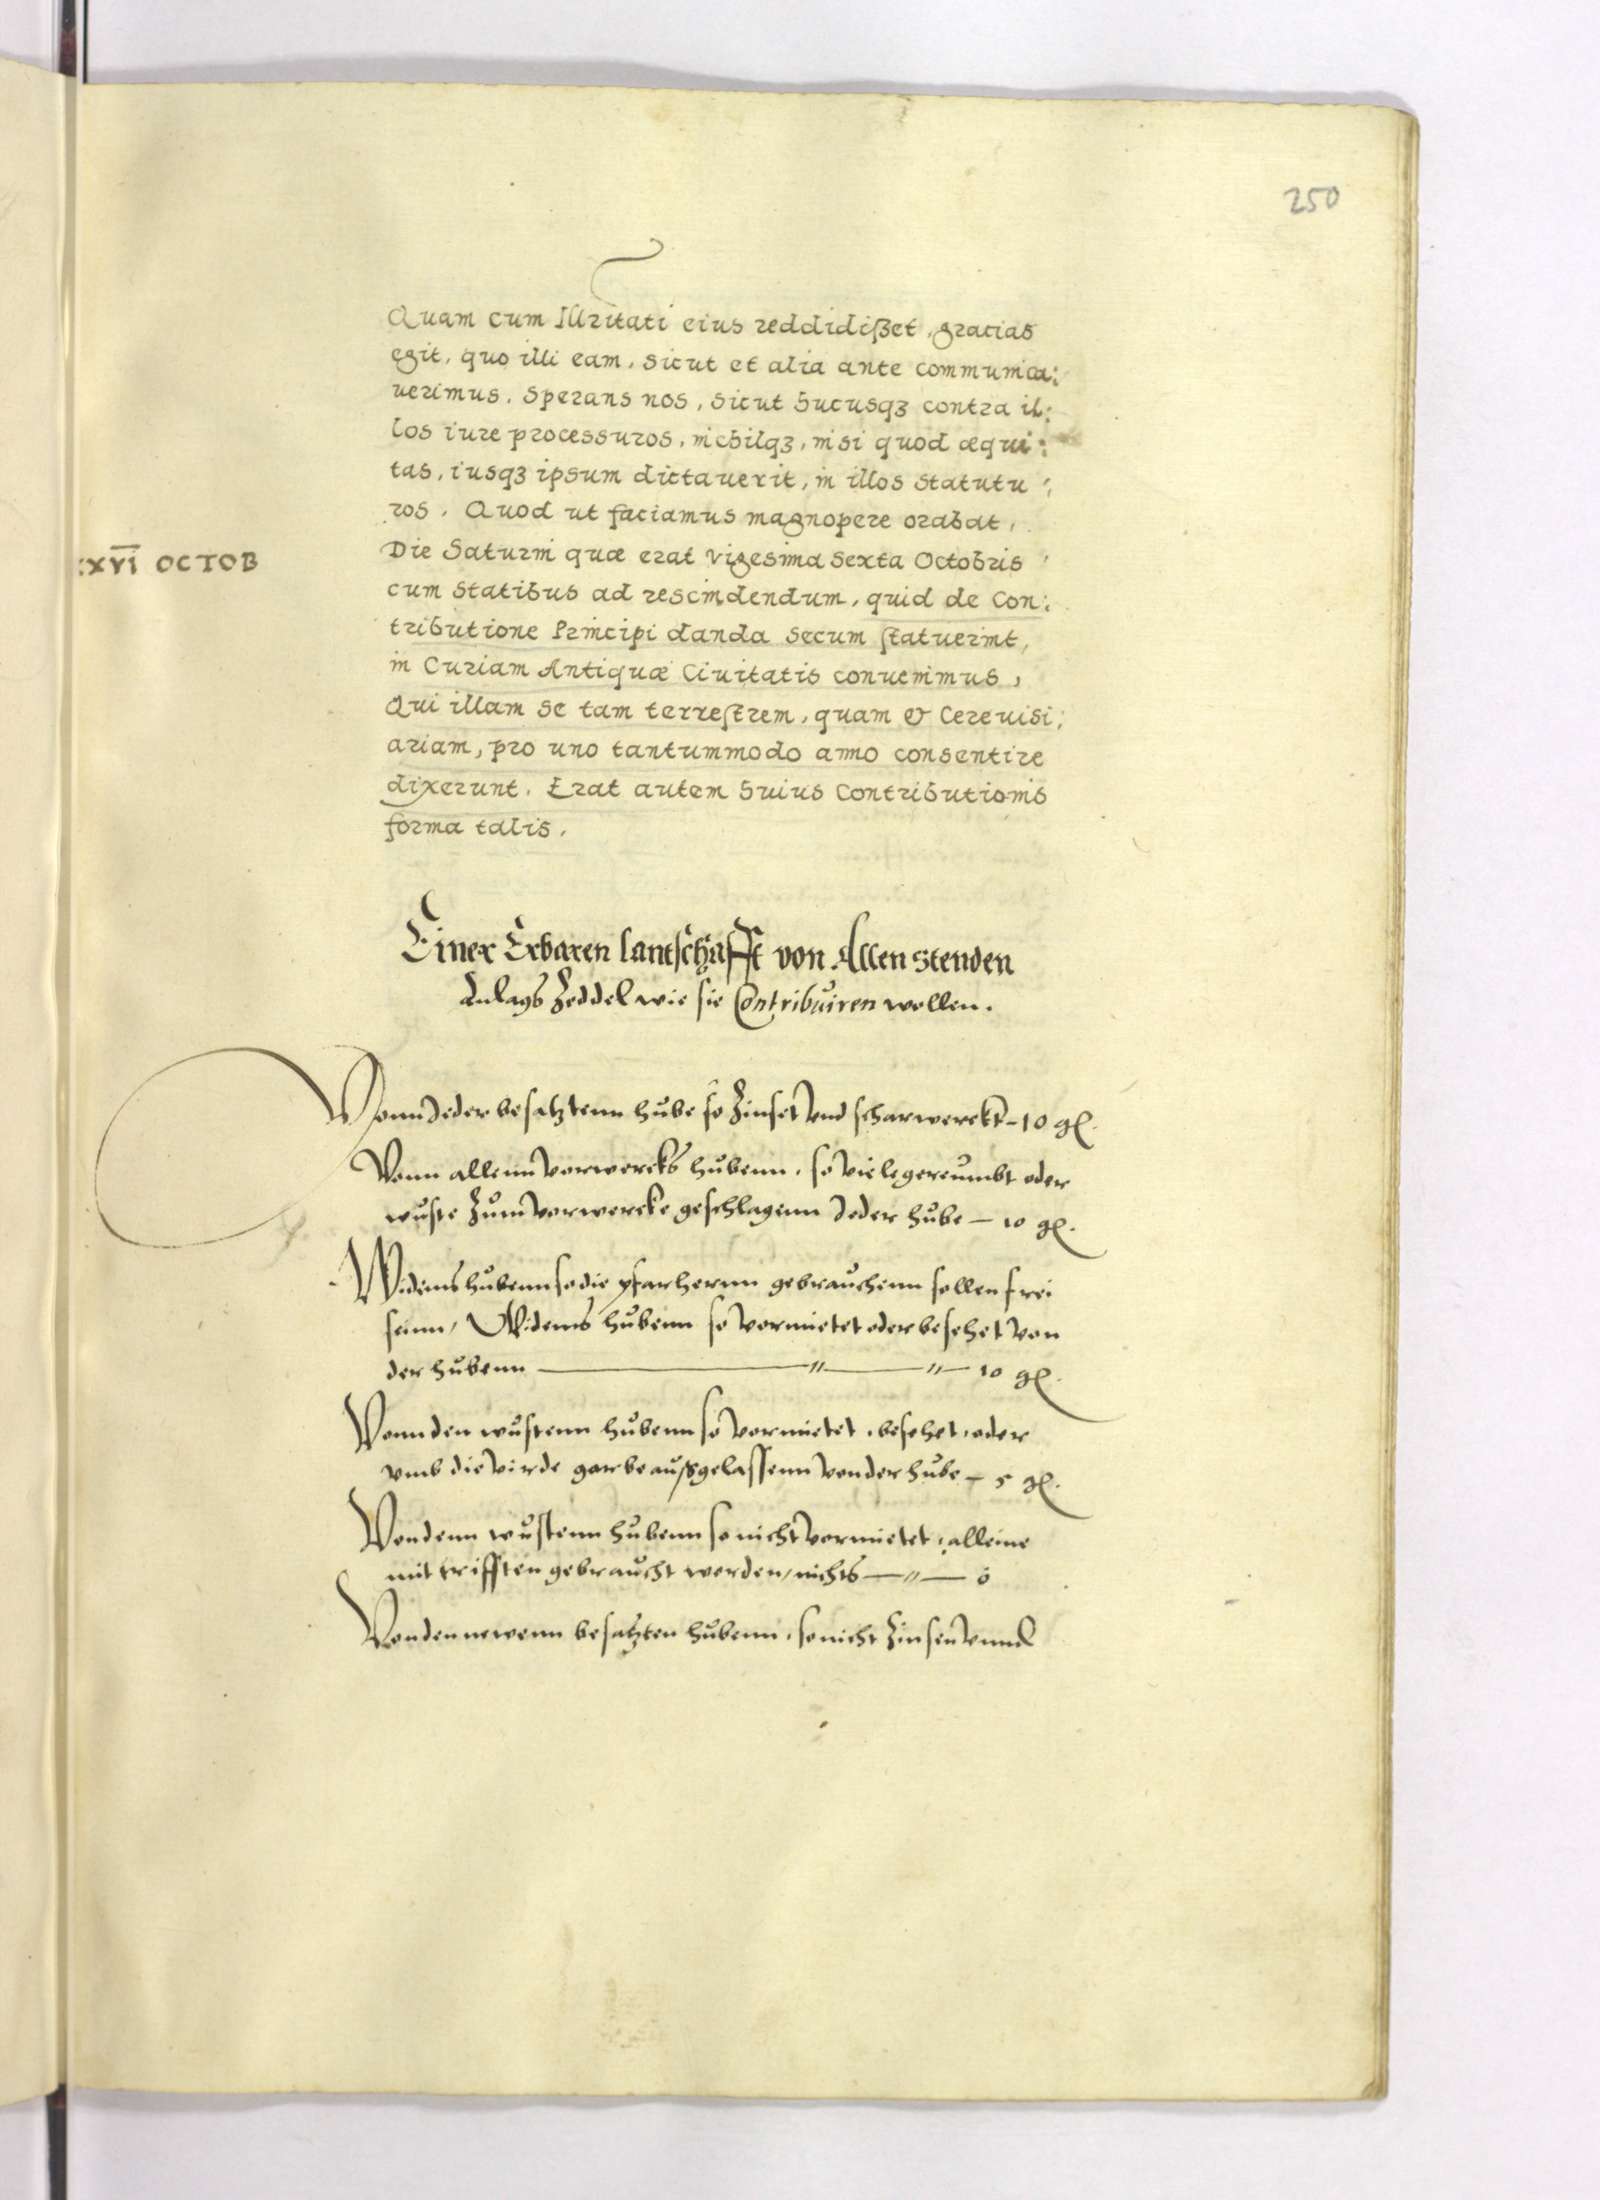 250
Quam cum Illritati eius reddidißet, gratias
egit, quo illi eam, sicut et alia ante communica:
uerimus. Sperans nos, sicut hucusqꝫ contra il:
los iure processuros, nichilqꝫ, nisi quod æqui:
tas, iusqꝫ ipsum dictauerit, in illos statutu:
ros. Quod ut faciamus magnopere orabat.
XXVI OCTOB
Die Saturni quæ erat vigesima sexta Octobris
cum Statibus ad rescindendum, quid de Con:
tributione Principi danda secum statuerint,
in Curiam Antiquæ Ciuitatis conuenimus,
Qui illam se tam terrestrem, quam & Cereuisi:
ariam, pro uno tantummodo anno consentire
dixerunt. Erat autem huius Contributionis
forma talis.
Einer Erbaren lantschafft von Allen stenden
Anlags Zeddel wie sie Contribuiren wollen.
Vonn Jeder besatztenn hube so Zinset vnd scharwerckt - 10 gl.
Vonn allenn vorwercks hubenn, so viele gereumbt oder
wuste Zum vorwercke geschlagenn Jeder hube - 10 gl.
Widems hubenn so die pfarhernn gebrauchenn sollen frei
seinn, Widems hubenn so vormietet oder besehet von
der hubenn — " — " — 10 gl.
Vonn den wustenn hubenn so vormietet, besehet, oder
vmb die virde garbe außgelassenn von der hube - 5 gl.
Von denn wustenn hubenn so nicht vormietet, alleine
mit trifften gebraucht werden, nichts — " — 0
Von den newenn besatzten hubenn, so nicht Zinsen vnnd